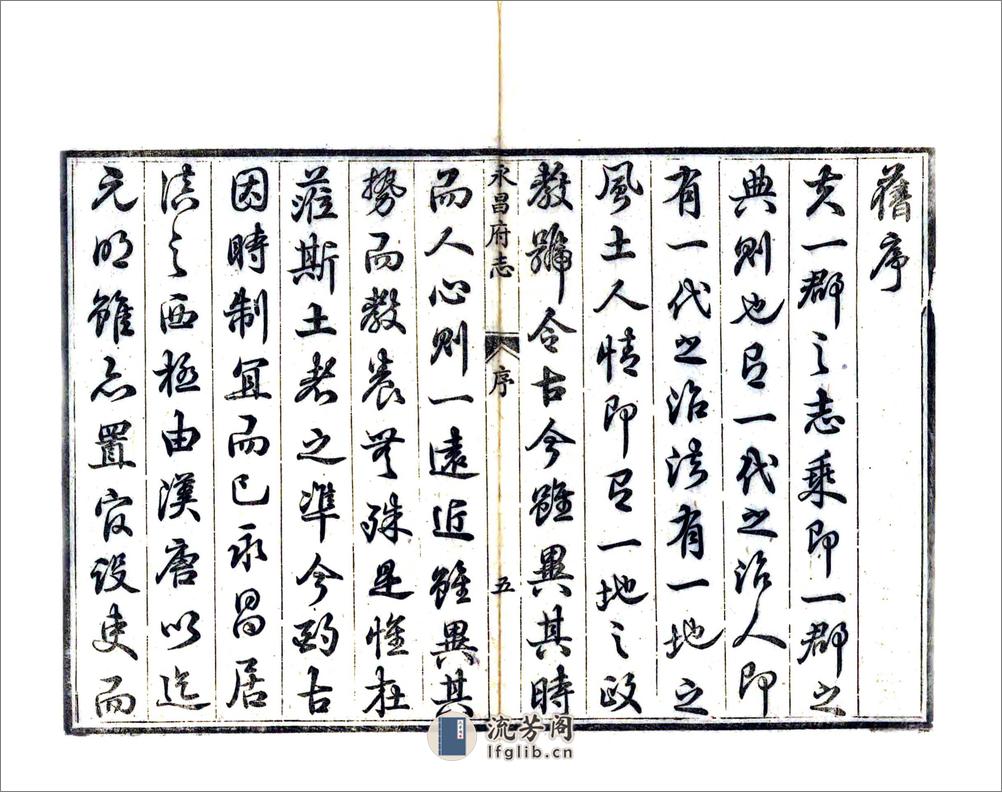 舊序
夫一郡之志乘即一郡之
典則也有一代之治人即
有一代之治法有一地之
風土人情即有一地之政
教號令古今雖異其時
永昌府志
序
五
而人心則一遠近雖異其
勢而教養無殊是惟在
蒞斯土者之準今酌古
因時制宜而已永昌居
滇之西極由漢唐以迄
元明雖亦置官設吏而
流芳阁
lfglib.cn